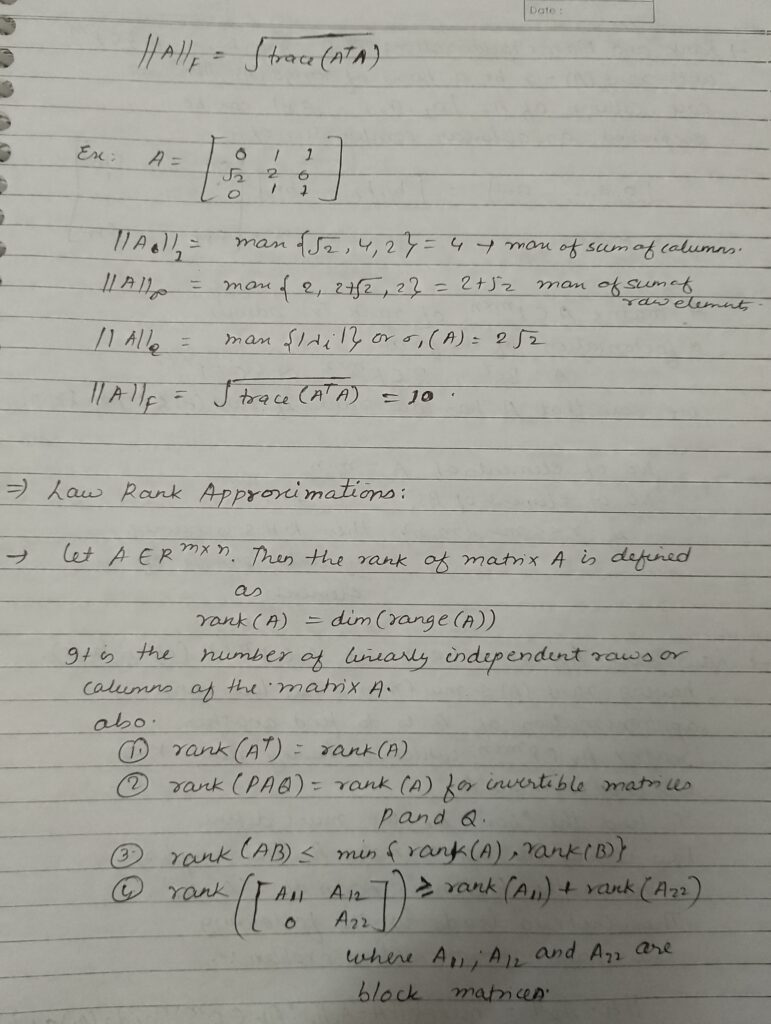 Date :
||A||_F = √trace(AᵀA)
Ex: A = [ 0 1 1
√2 2 0
0 1 1 ]
||A||_1 = max {√2, 4, 2} = 4 → max of sum of columns.
||A||_∞ = max { 2, 2+√2, 2} = 2+√2 max of sum of
row elements.
||A||_2 = max {|λi|} or σ₁(A) = 2√2
||A||_F = √trace (AᵀA) = 10.
⇒ Low Rank Approximations:
→ Let A ∈ R^{m×n}. Then the rank of matrix A is defined
as
rank(A) = dim(range(A))
It is the number of linearly independent rows or
columns of the matrix A.
also.
① rank(Aᵀ) = rank(A)
② rank (PAQ) = rank (A) for invertible matrices
P and Q.
③ rank (AB) ≤ min { rank(A), rank(B)}
④ rank ([ A₁₁ A₁₂
0 A₂₂ ]) ≥ rank (A₁₁) + rank (A₂₂)
where A₁₁, A₁₂ and A₂₂ are
block matrices.